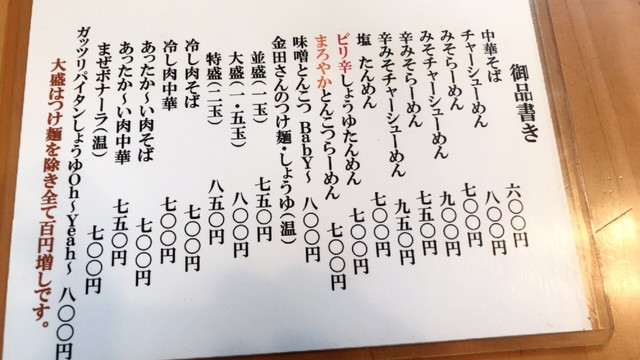 御品書き
中華そば 六〇〇円
チャーシューめん 八〇〇円
みそらーめん 七〇〇円
みそチャーシューめん 九〇〇円
辛みそらーめん 七五〇円
辛みそチャーシューめん 九五〇円
塩 たんめん 七〇〇円
ピリ辛しょうゆたんめん
まろやかとんこつらーめん 七〇〇円
味噌とんこつ BabY～ 八〇〇円
金田さんのつけ麺・しょうゆ(温)
並盛(一玉) 七五〇円
大盛(一・五玉) 八〇〇円
特盛(二玉) 八五〇円
冷し肉そば 七〇〇円
冷し肉中華 七〇〇円
あったか～い肉そば 七〇〇円
あったか～い肉中華 七五〇円
まぜボナーラ(温) 七〇〇円
ガッツリパイタンしょうゆOh～Yeah～ 八〇〇円
大盛はつけ麺を除き全て百円増しです。